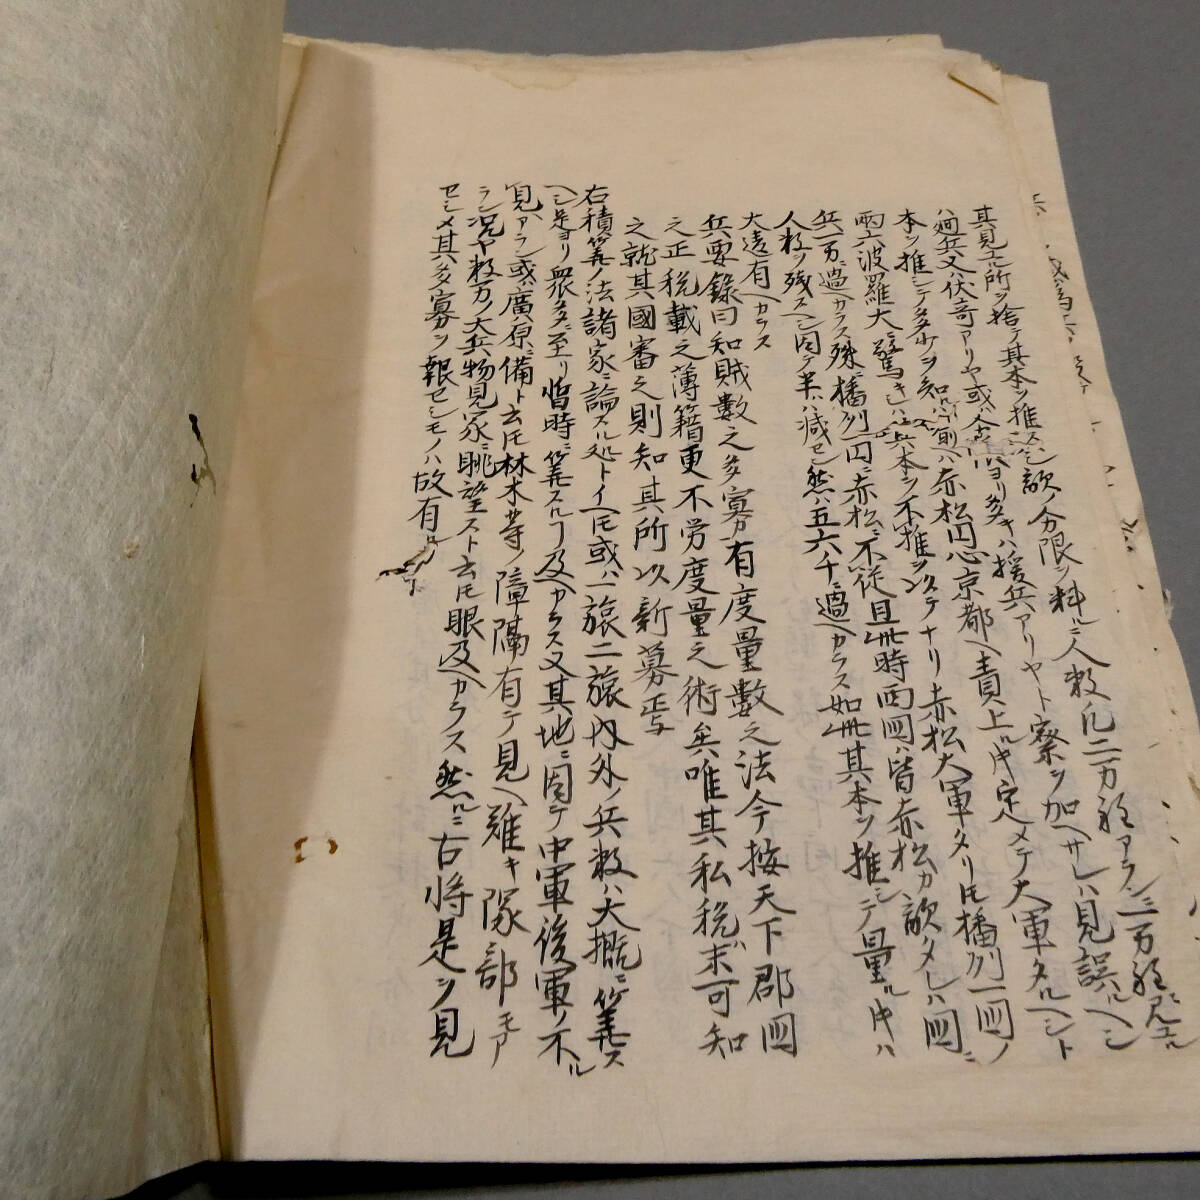 其見エル所ヲ捨テ其本ヲ推ス足敵ノ分限ヲ料ルニ人数凡二万程アラン三万程見エル
ハ廻兵又ハ伏奇アリヤ或ハ ヨリ多キハ援兵アリヤト察ヲ加ヘサレハ見誤ルヘシ
本ヲ推シテ多少ヲ知ルハ前ヘハ赤松円心京都ヘ責上ル時定メテ大軍タルヘシト
両六波羅大ニ驚キシハ兵本ヲ不推ヲ以テナリ赤松大軍タリ𪜈播州一国ノ
兵一万ニ過ヘカラス殊ニ播州一円ニ赤松ニ不従且此時西国ハ皆赤松カ敵タレハ国ニ
人数ヲ残スヘシ因テ半ハ減セン然ハ五六千ニ過ヘカラス如此其本ヲ推シテ量ル時ハ
大違有ヘカラス
兵要録曰知賊数之多寡有度量数之法今按天下郡国
之正税載之薄籍更不労度量之術矣唯其私税末可知
之就其國審之則知其所以新募焉
右積筭ノ法諸家ニ論スル処トイヘ𪜈或ハ一旅二旅内外ノ兵数ハ大概ニ筭ス
ヘシ是ヨリ衆多ニ至リ暫時ニ筭スルヿ及ヘカラス又其地ニ因テ中軍後軍ノ不ル
見アラン或ハ廣原ニ備ト云𪜈林木等ノ障隔有テ見ヘ難キ隊部モア
ラン況ヤ数万ノ大兵物見家ニ眺望スト云𪜈眼及ヘカラス然ルニ古将是ヲ見
セシメ其多寡ヲ報セシモノハ故有ル